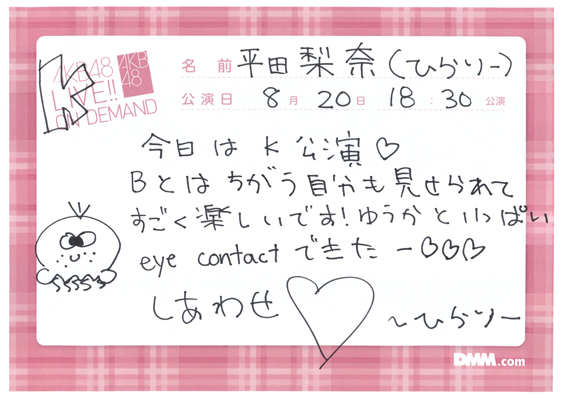 K
AKB48
LIVE!!
ON DEMAND
AKB
48
名 前 平田梨奈(ひらりー)
公演日 8月20日 18:30公演
今日はK公演♡
Bとはちがう自分も見せられて
すごく楽しいです!ゆうかといっぱい
eye contactできたー♡♡♡
しあわせ♡
~ひらりー
DMM.com